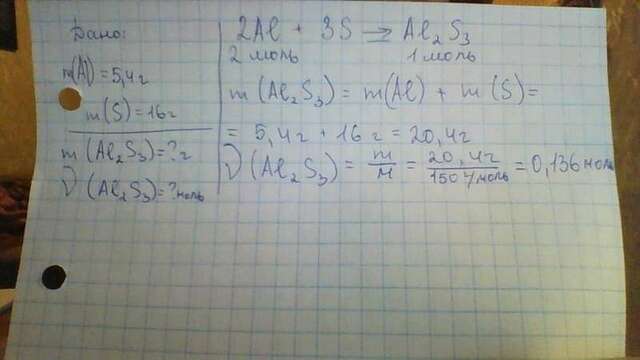 Дано:
m(Al) = 5,4г
m(S) = 16г
m(Al₂S₃) = ? г
ν(Al₂S₃) = ? моль
2Al + 3S → Al₂S₃
2 моль 1 моль
m(Al₂S₃) = m(Al) + m(S) =
= 5,4г + 16г = 20,4г
ν(Al₂S₃) = m/M = 20,4г/150г/моль = 0,136 моль